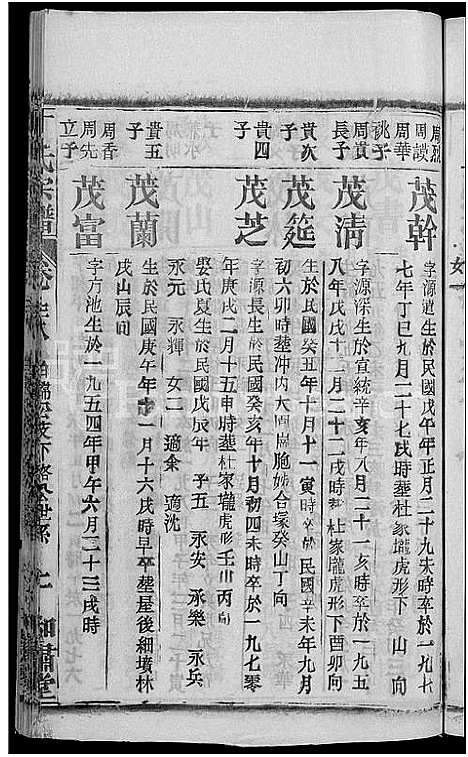 周烈
周謨
周華
祧子
茂幹
字源道生於民國戊午年正月二十九未時卒於一九七
七年丁巳九月二十七戌時塟杜家壠虎形下山向
女一
周貴
長子
茂清
字源深生於宣統辛亥年八月二十一亥時卒於一九五
八年戊戌十二月二十二戌時塟杜家壠虎形下酉卯向
貴次
子
茂筵
生於民國癸丑年十月十一寅時卒於民國辛未年九月
初六卯時塟冲内大園與胞姊合塚癸山丁向
貴四
子
茂芝
字源長生於民國癸亥年十月初四未時卒於一九七零
年庚戌二月十五申時塟杜家壠虎形壬山丙向
娶氏夏生於民國戊辰年 子五 永安 永樂 永兵
永元 永輝 女二 適余 適沈
貴五
子
茂蘭
生於民國庚午年十一月十六戌時早卒塟屋後細墳林
戌山辰向
周香
周先
立子
茂富
字方池生於一九五四年甲午六月二十三戌時
氏宗譜